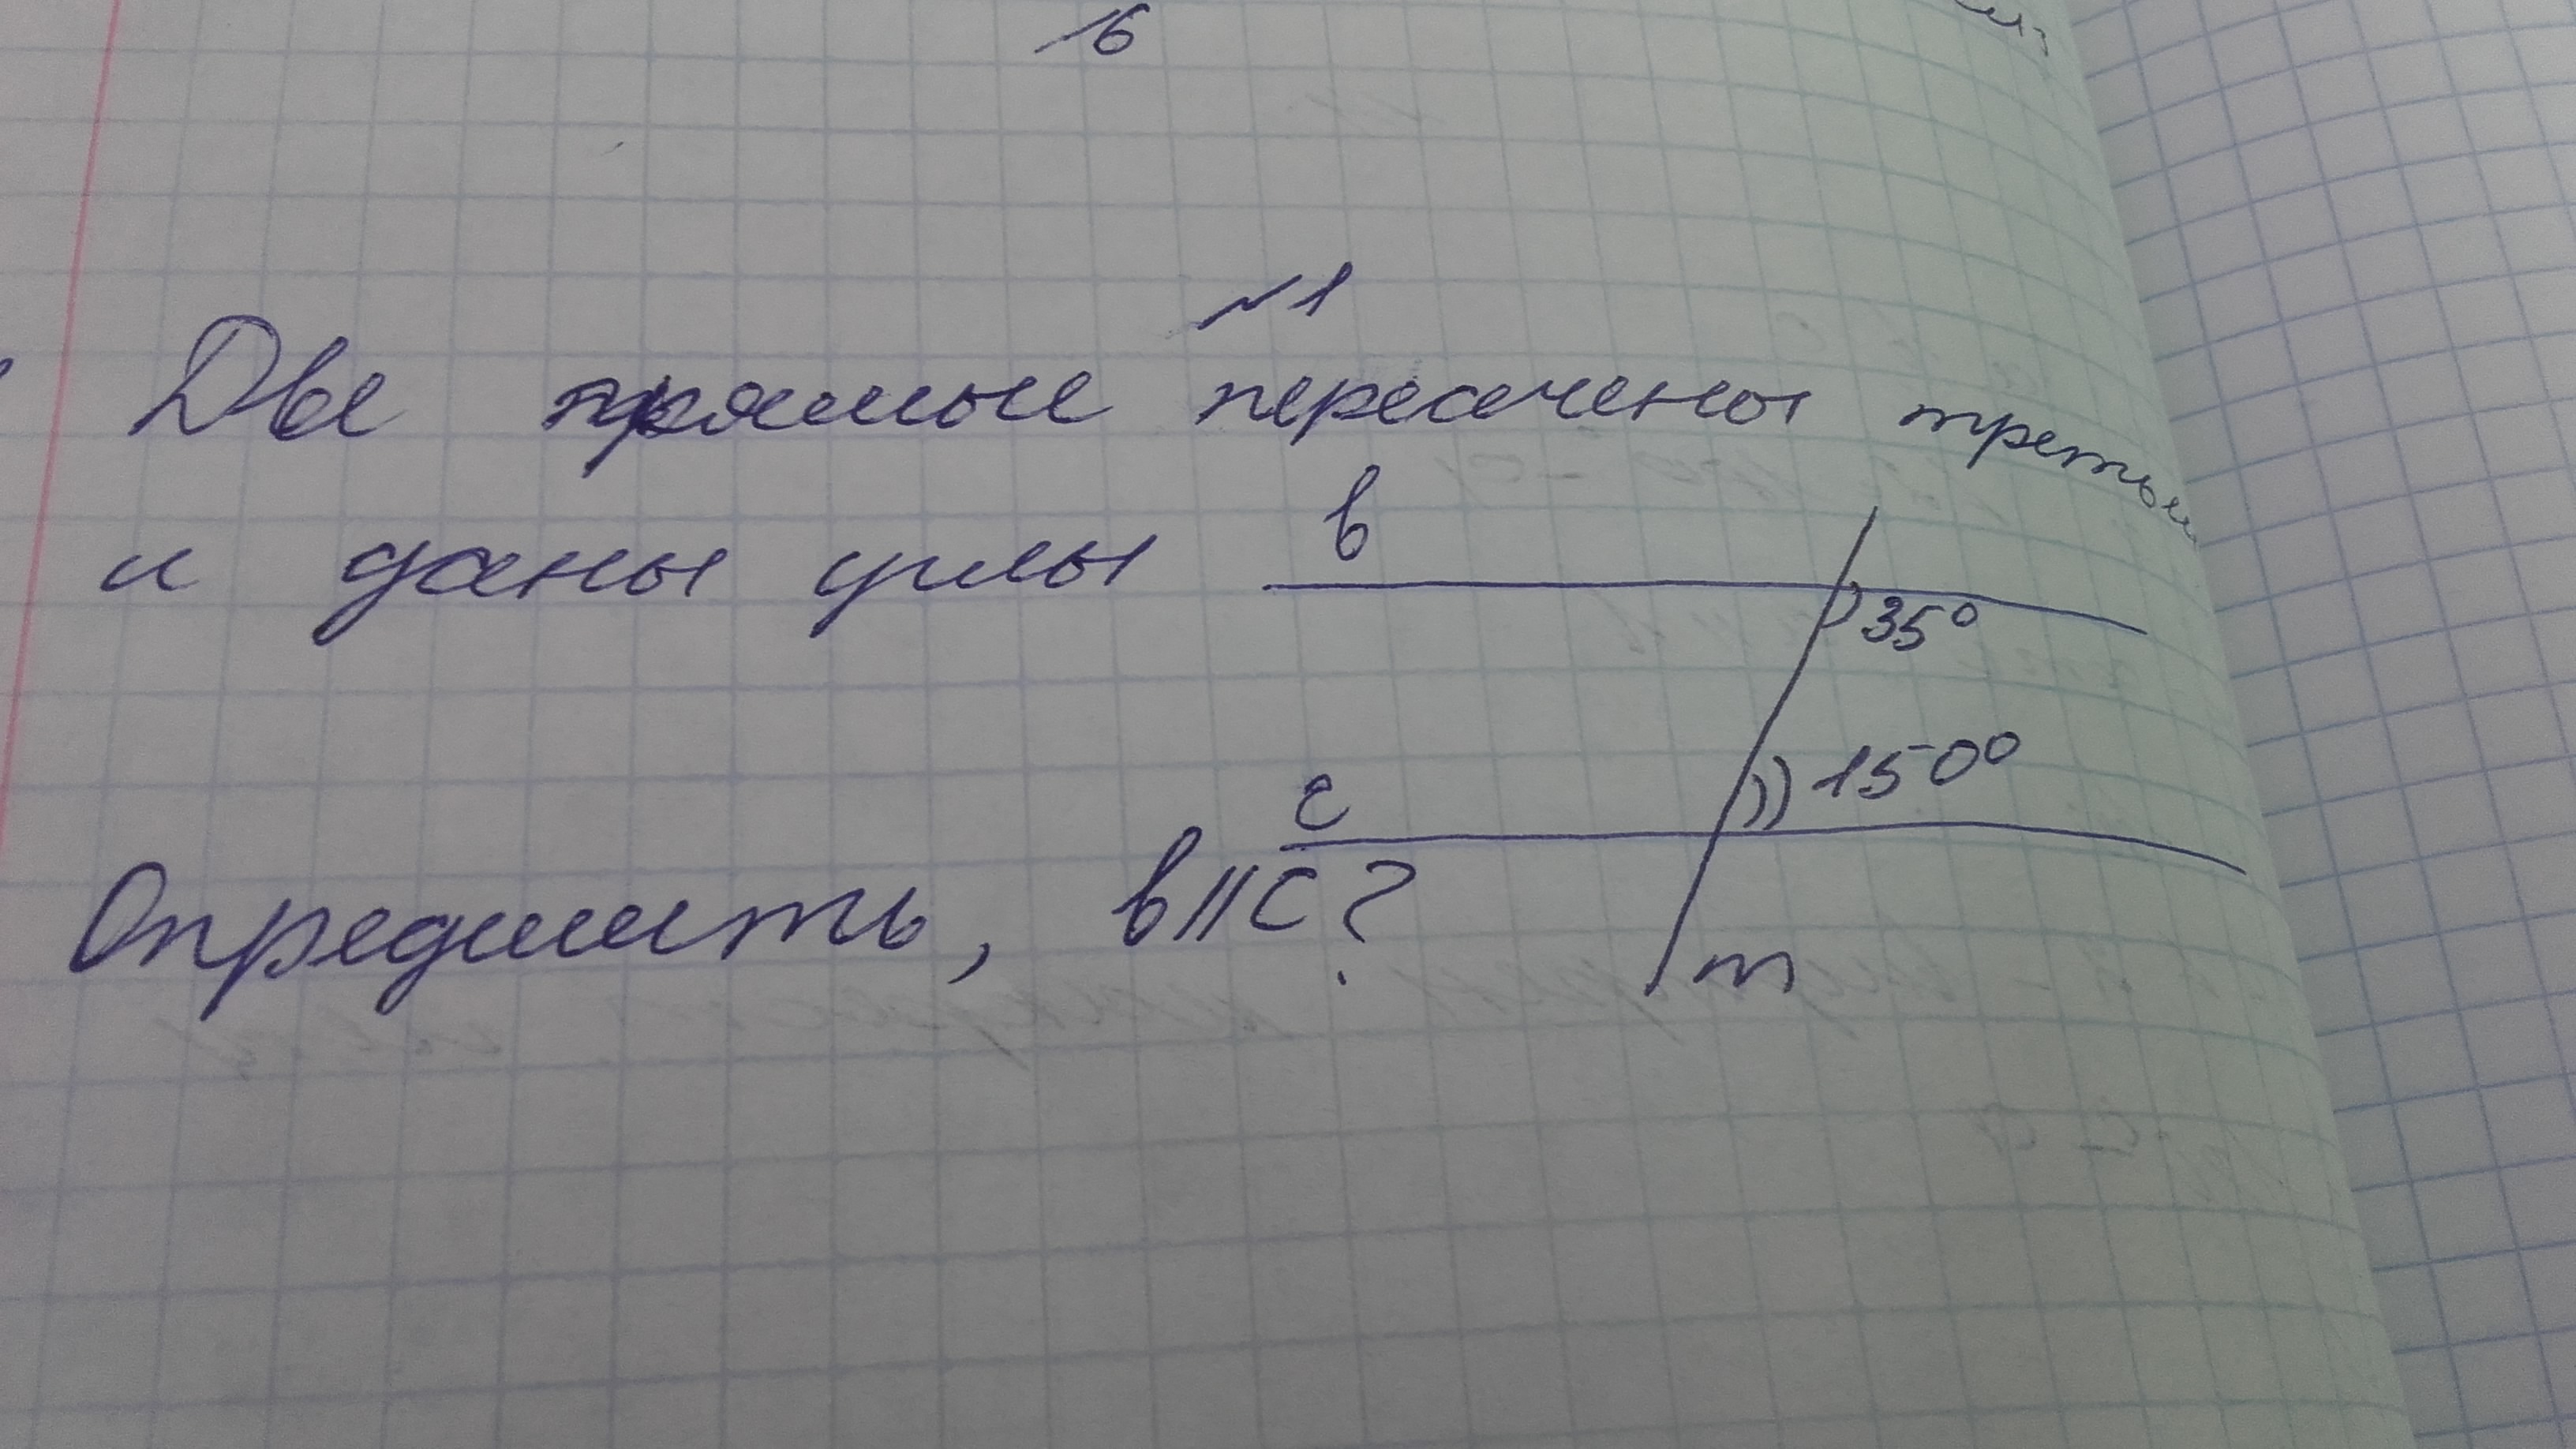 16
№1
Две прямые пересечены третьей
и даны углы
в
35°
150°
с
m
Определить, в||с?